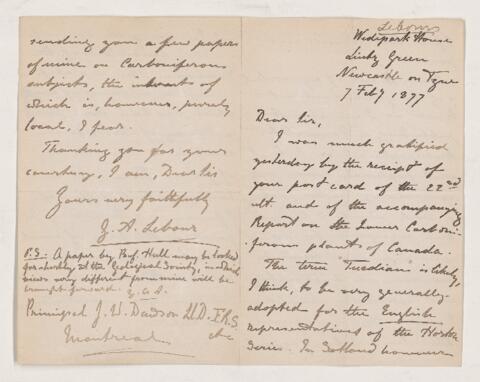 Lebour
Wedipark House
Linty Green
Newcastle on Tyne
7 Feby 1877
Dear Sir,
I was much gratified
yesterday by the receipt of
your post card of the 22nd
ult. and of the accompanying
Report on the Lower Carboni-
ferous plants of Canada.
The term Tuedian is likely,
I think, to be very generally
adopted for the English
representatives of the Horton
Series. In Scotland however
sending you a few papers
of mine on Carboniferous
subjects, the interest of
which is, however, purely
local, I fear.
Thanking you for your
courtesy, I am, Dear Sir
Yours very faithfully
G. A. Lebour
P.S. A paper by Prof. Hull may be looked
for shortly at the Geological Society, in which
views very different from mine will be
brought forward. G. A. L.
Principal J. W. Dawson LL.D. F.R.S.
&c
Montreal